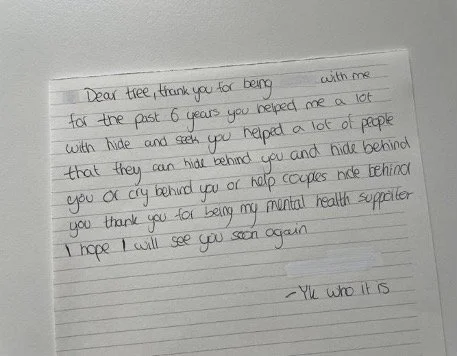 Dear tree, thank you for being with me
for the past 6 years you helped me a lot
with hide and seek you helped a lot of people
that they can hide behind you and hide behind
you or cry behind you or help couples hide behind
you thank you for being my mental health supporter
I hope I will see you soon again
-Yk who it is